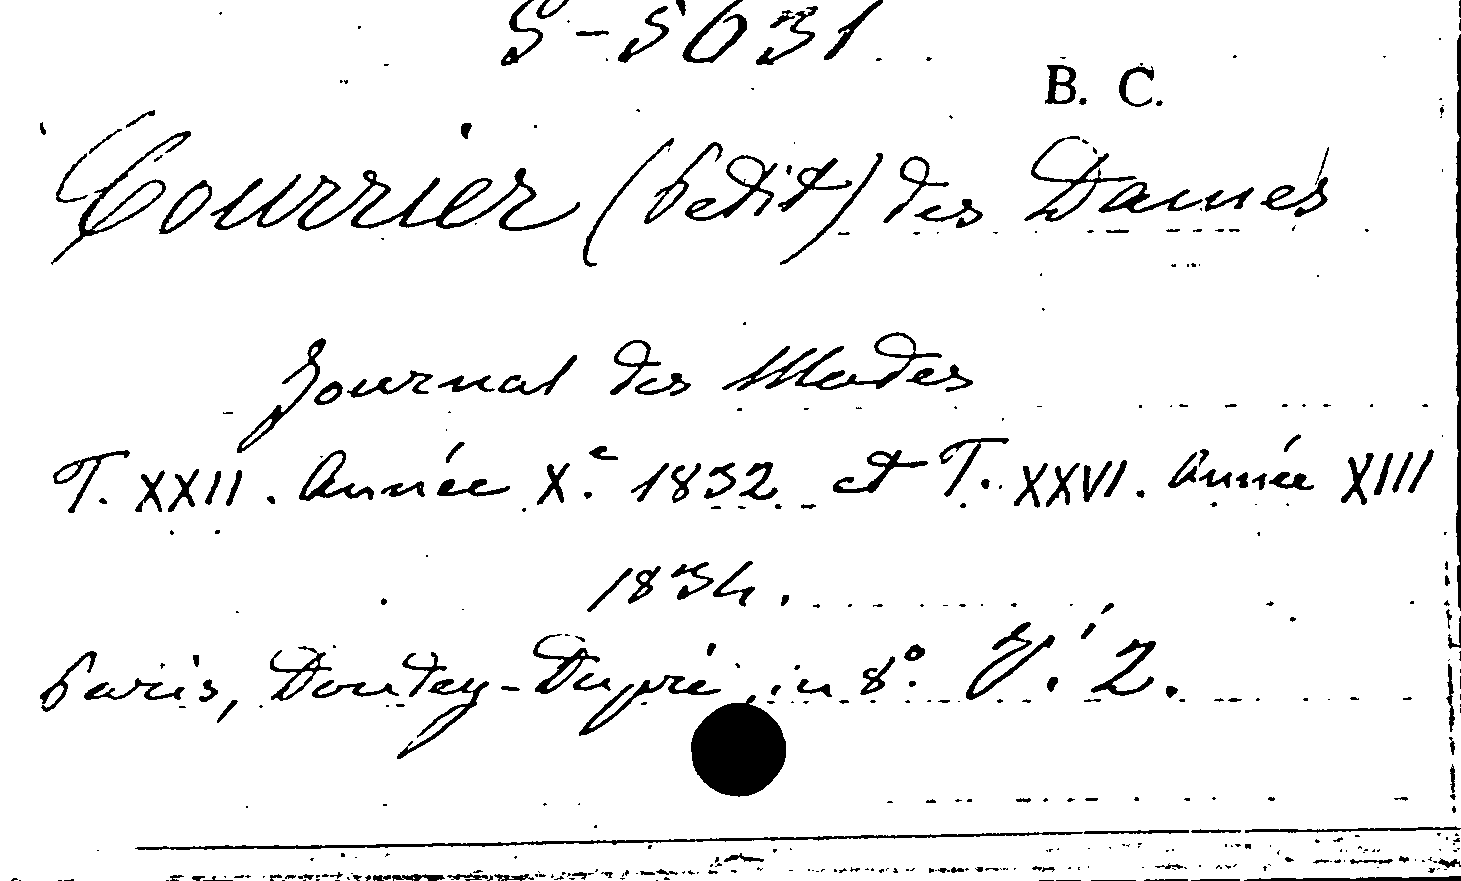 S-5631
B. C.
Courrier (Petit) des Dames
Journal des Modes
T. XXII. Année X.e 1832 et T. XXVI. Année XIII
1834.
Paris, Dondey-Dupré, in 8°. V.' 2.